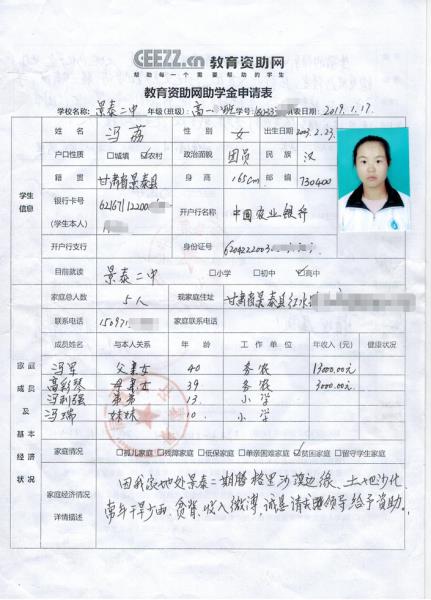 GEEZZ.cn 教育资助网
帮助每一个需要帮助的学生
教育资助网助学金申请表
学校名称:景泰二中 年级(班级):高一 班 学号: 填表日期:2019.1.17.
姓名 冯荔 性别 女 出生日期 2003.2.23.
户口性质 □城填 ☑农村 政治面貌 团员 民族 汉
学生信息
籍贯 甘肃省景泰县 身高 165cm 邮编 730400
银行卡号(学生本人) 62167112200 开户行名称 中国农业银行
开户行支行 身份证号 6204222003
目前就读 景泰二中 □小学 □初中 ☑高中
家庭总人数 5人 现家庭住址 甘肃省景泰县红水
联系电话 15097 家庭联系电话
家庭成员及基本经济状况
成员姓名 与本人关系 年龄 工作单位 年收入(元) 健康状况
冯军 父亲女 40 务农 13000.00元
高彩琴 母亲女 39 务农 3000.00元
冯利强 弟弟 13. 小学
冯瑞 妹妹 10. 小学
家庭情况 □孤儿家庭 □残障家庭 □低保家庭 □单亲困难家庭 ☑贫困家庭 □留守学生家庭
家庭经济情况详情描述
因我家地处景泰二期腾格里沙漠边缘、土地沙化
常年干旱少雨,贫脊,收入微薄,诚恳请 领导给予资助。